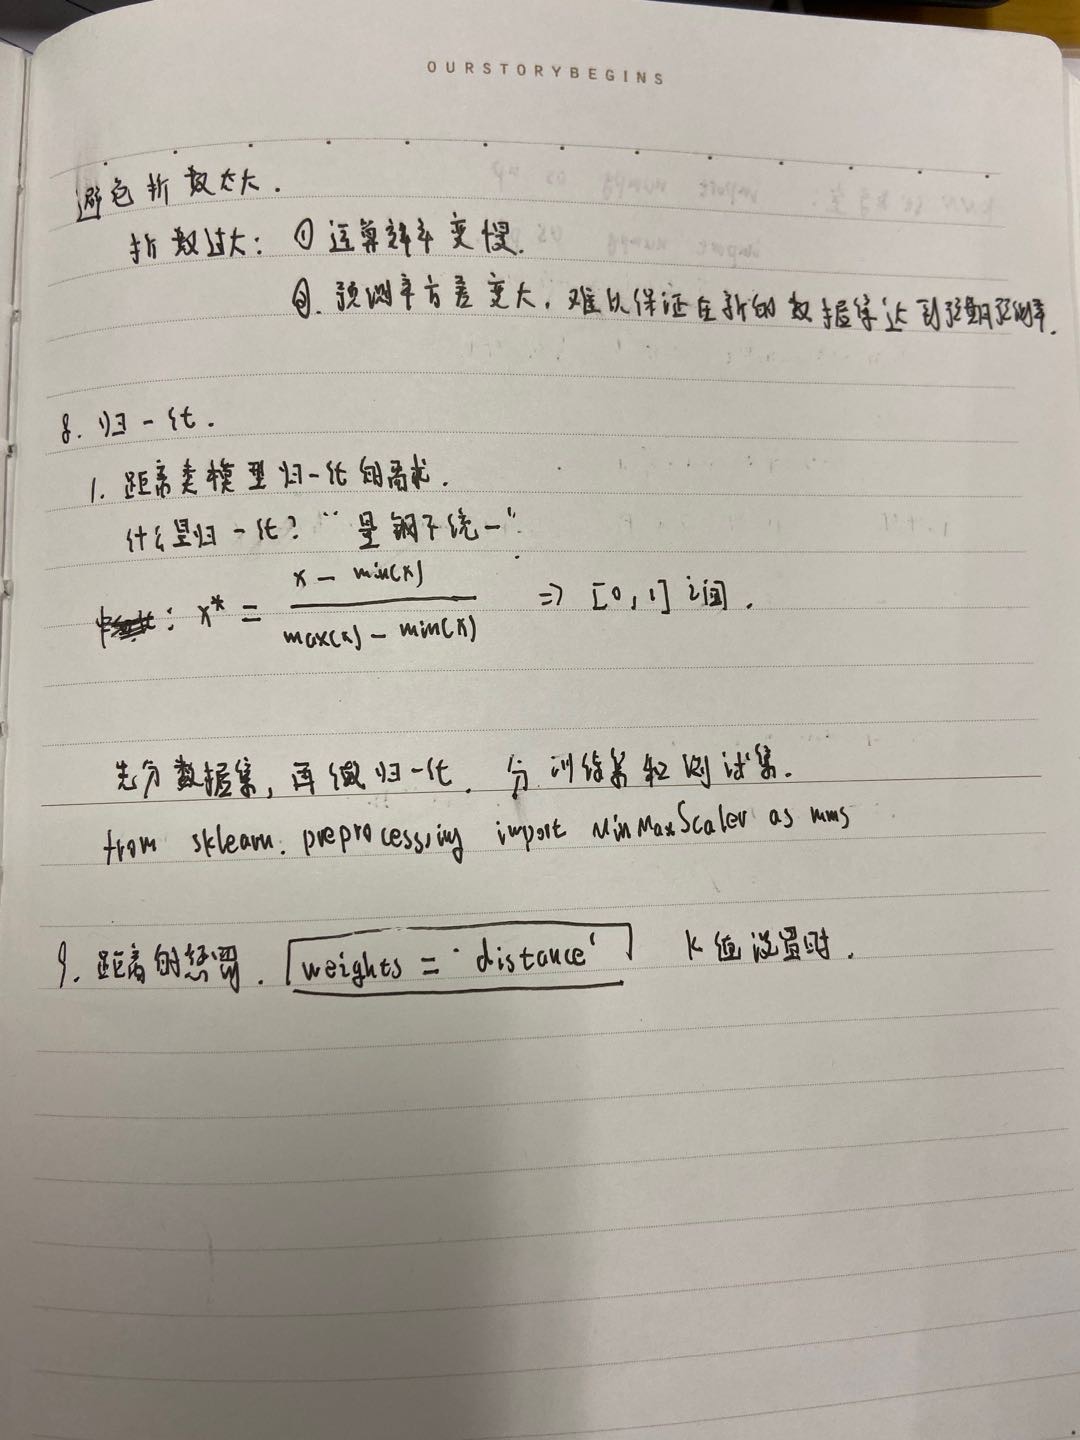 OURSTORYBEGINS
避免折数太大.
折数过大: ① 运算效率变慢.
②. 预测率方差变大, 难以保证在新的数据集达到预期预测率.
8. 归一化.
1. 距离类模型归一化的需求.
什么是归一化? “量纲不统一”.
: x* = x - min(x) / max(x) - min(x) => [0, 1] 之间.
先分数据集, 再做归一化. 分训练集和测试集.
from sklearn. preprocessing import MinMaxScaler as mms
9. 距离的惩罚. weights = 'distance' K值设置时.